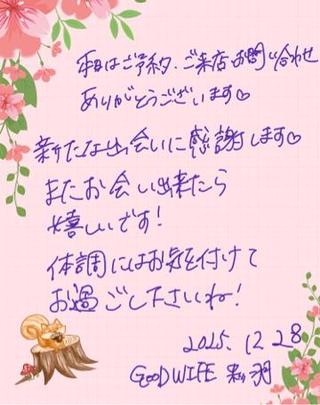 本日はご予約、ご来店、お問い合わせ
ありがとうございます♡
新たな出会いに感謝します♡
またお会い出来たら
嬉しいです！
体調にはお気を付けて
お過ごし下さいね！
2025.12.28
GOODWIFE